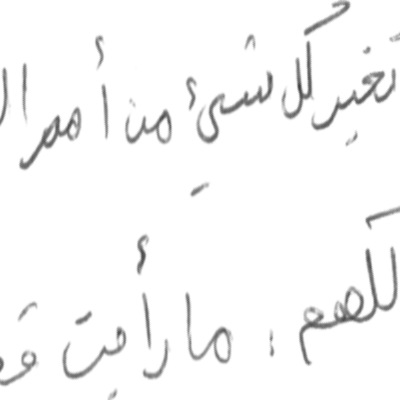 تغير كل شيء من أمر ا
لكهم : ما رأيت